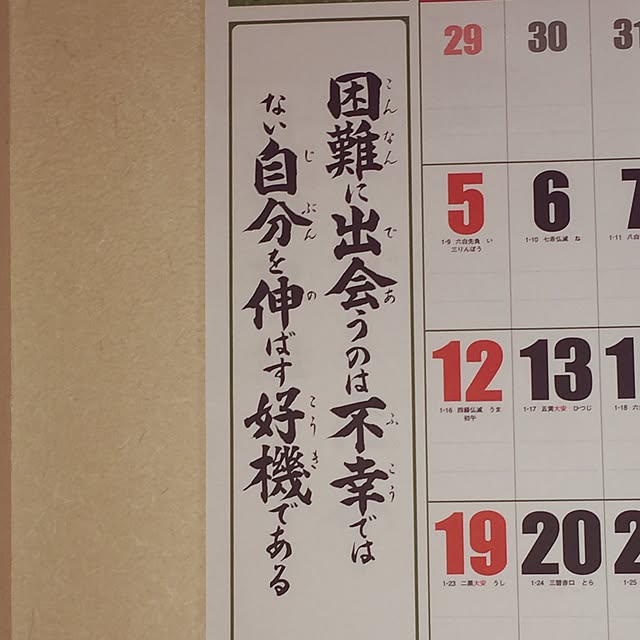 困難に出会うのは不幸では
ない自分を伸ばす好機である
29 30 31
5 6 7
1-9 六白先負 い
三りんぼう
1-10 七赤仏滅 ね
1-11 八白
12 13 1
1-16 四緑仏滅 うま
初午
1-17 五黄大安 ひつじ
1-18 六
19 20 2
1-23 二黒大安 うし
1-24 三碧赤口 とら
1-25